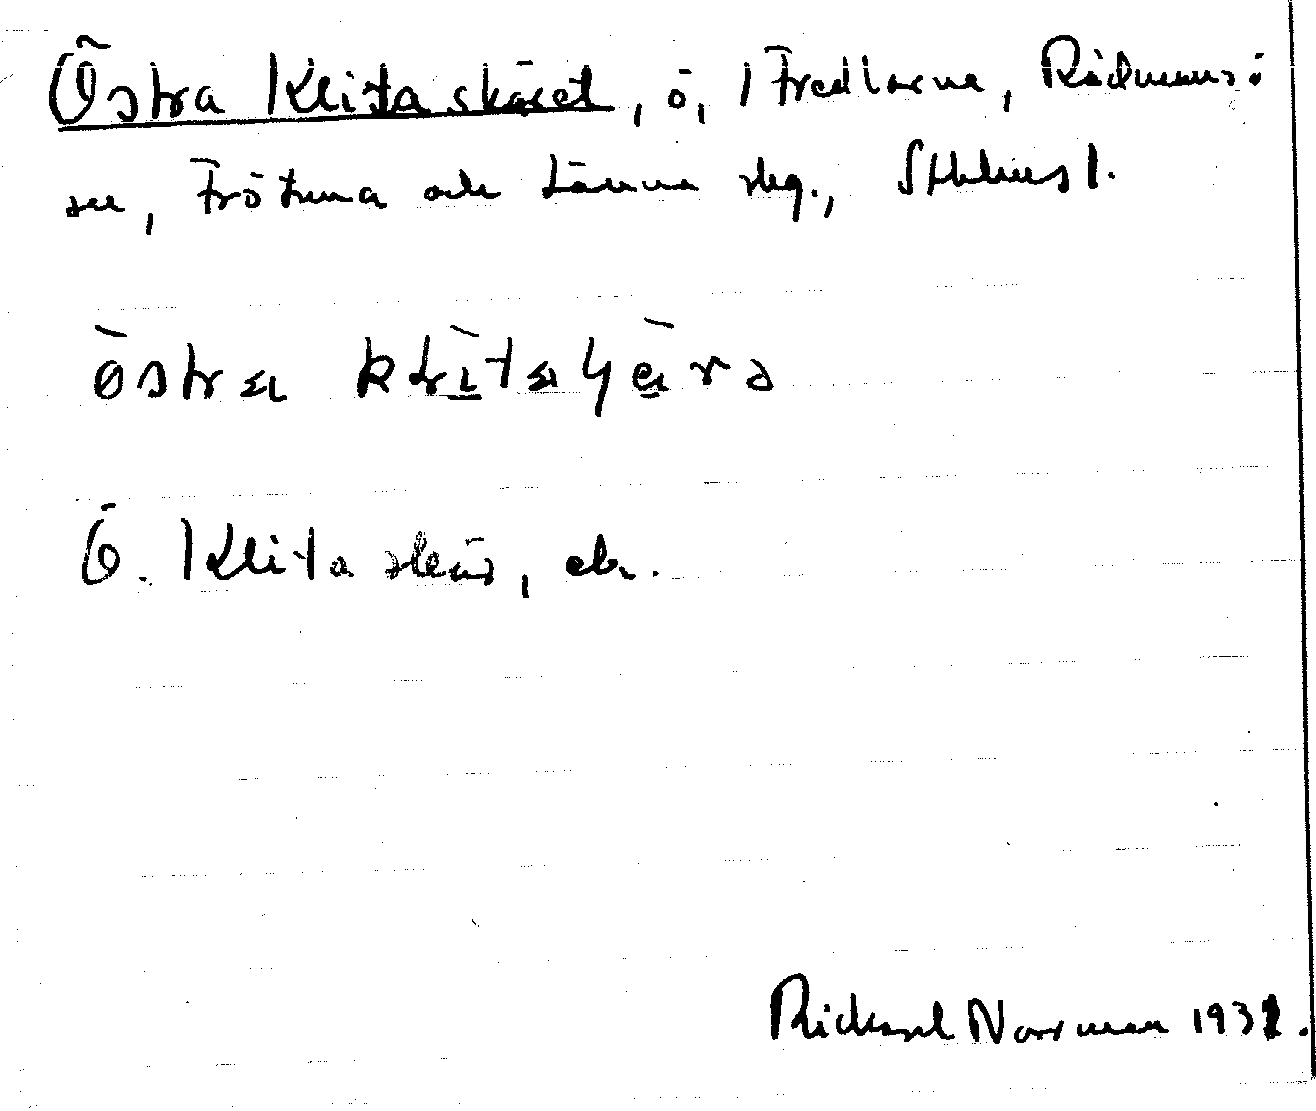 Östra Klitaskäret, ö, Fredlarna, Rådmansö
sn, Frötuna och Länna skg., Sthlms l.
östra klitaʃärə
Ö. Klitaskär, ek.
Rickard Norrman 1932.